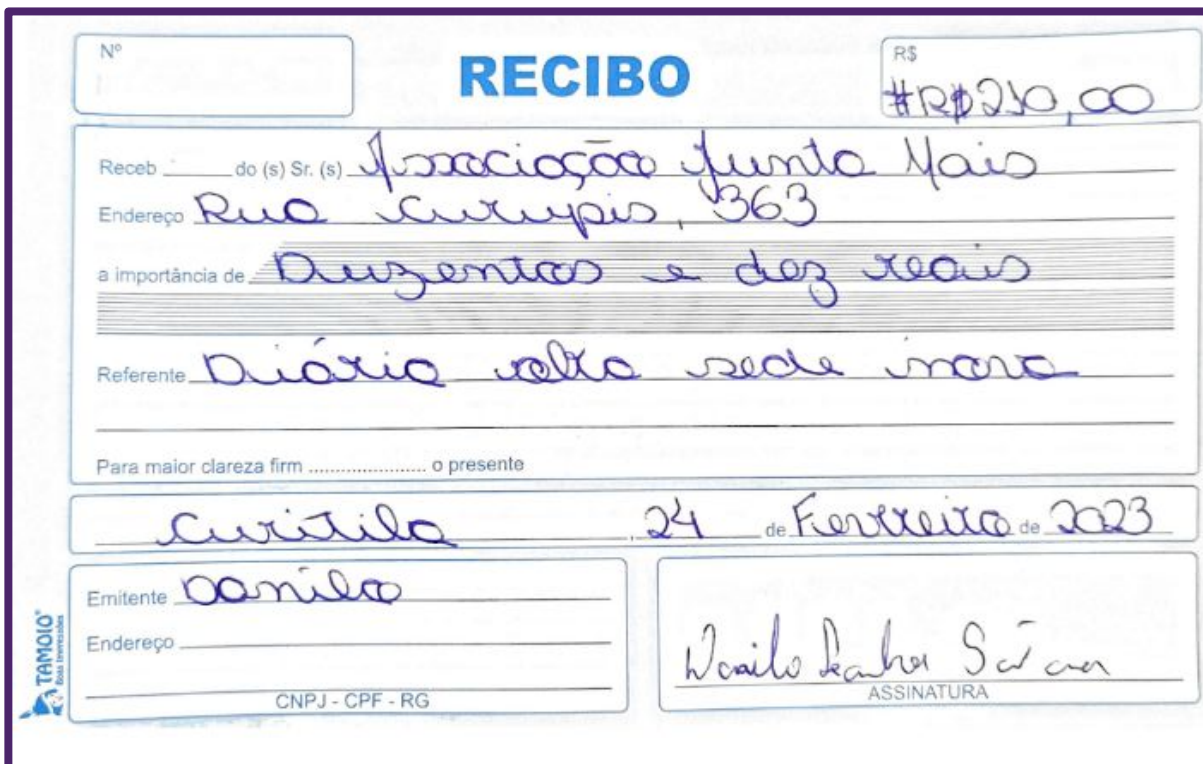 Nº
RECIBO
R$
#R$210,00
Receb ____ do (s) Sr. (s) Associação Junto Mais
Endereço Rua Curupis, 363
a importância de Duzentos e dez reais
Referente Diária obra sede nova
Para maior clareza firm ..................... o presente
Curitiba, 24 de Ferreiro de 2023
Emitente Danilo
Endereço
CNPJ - CPF - RG
Danilo
ASSINATURA
TAMOIO